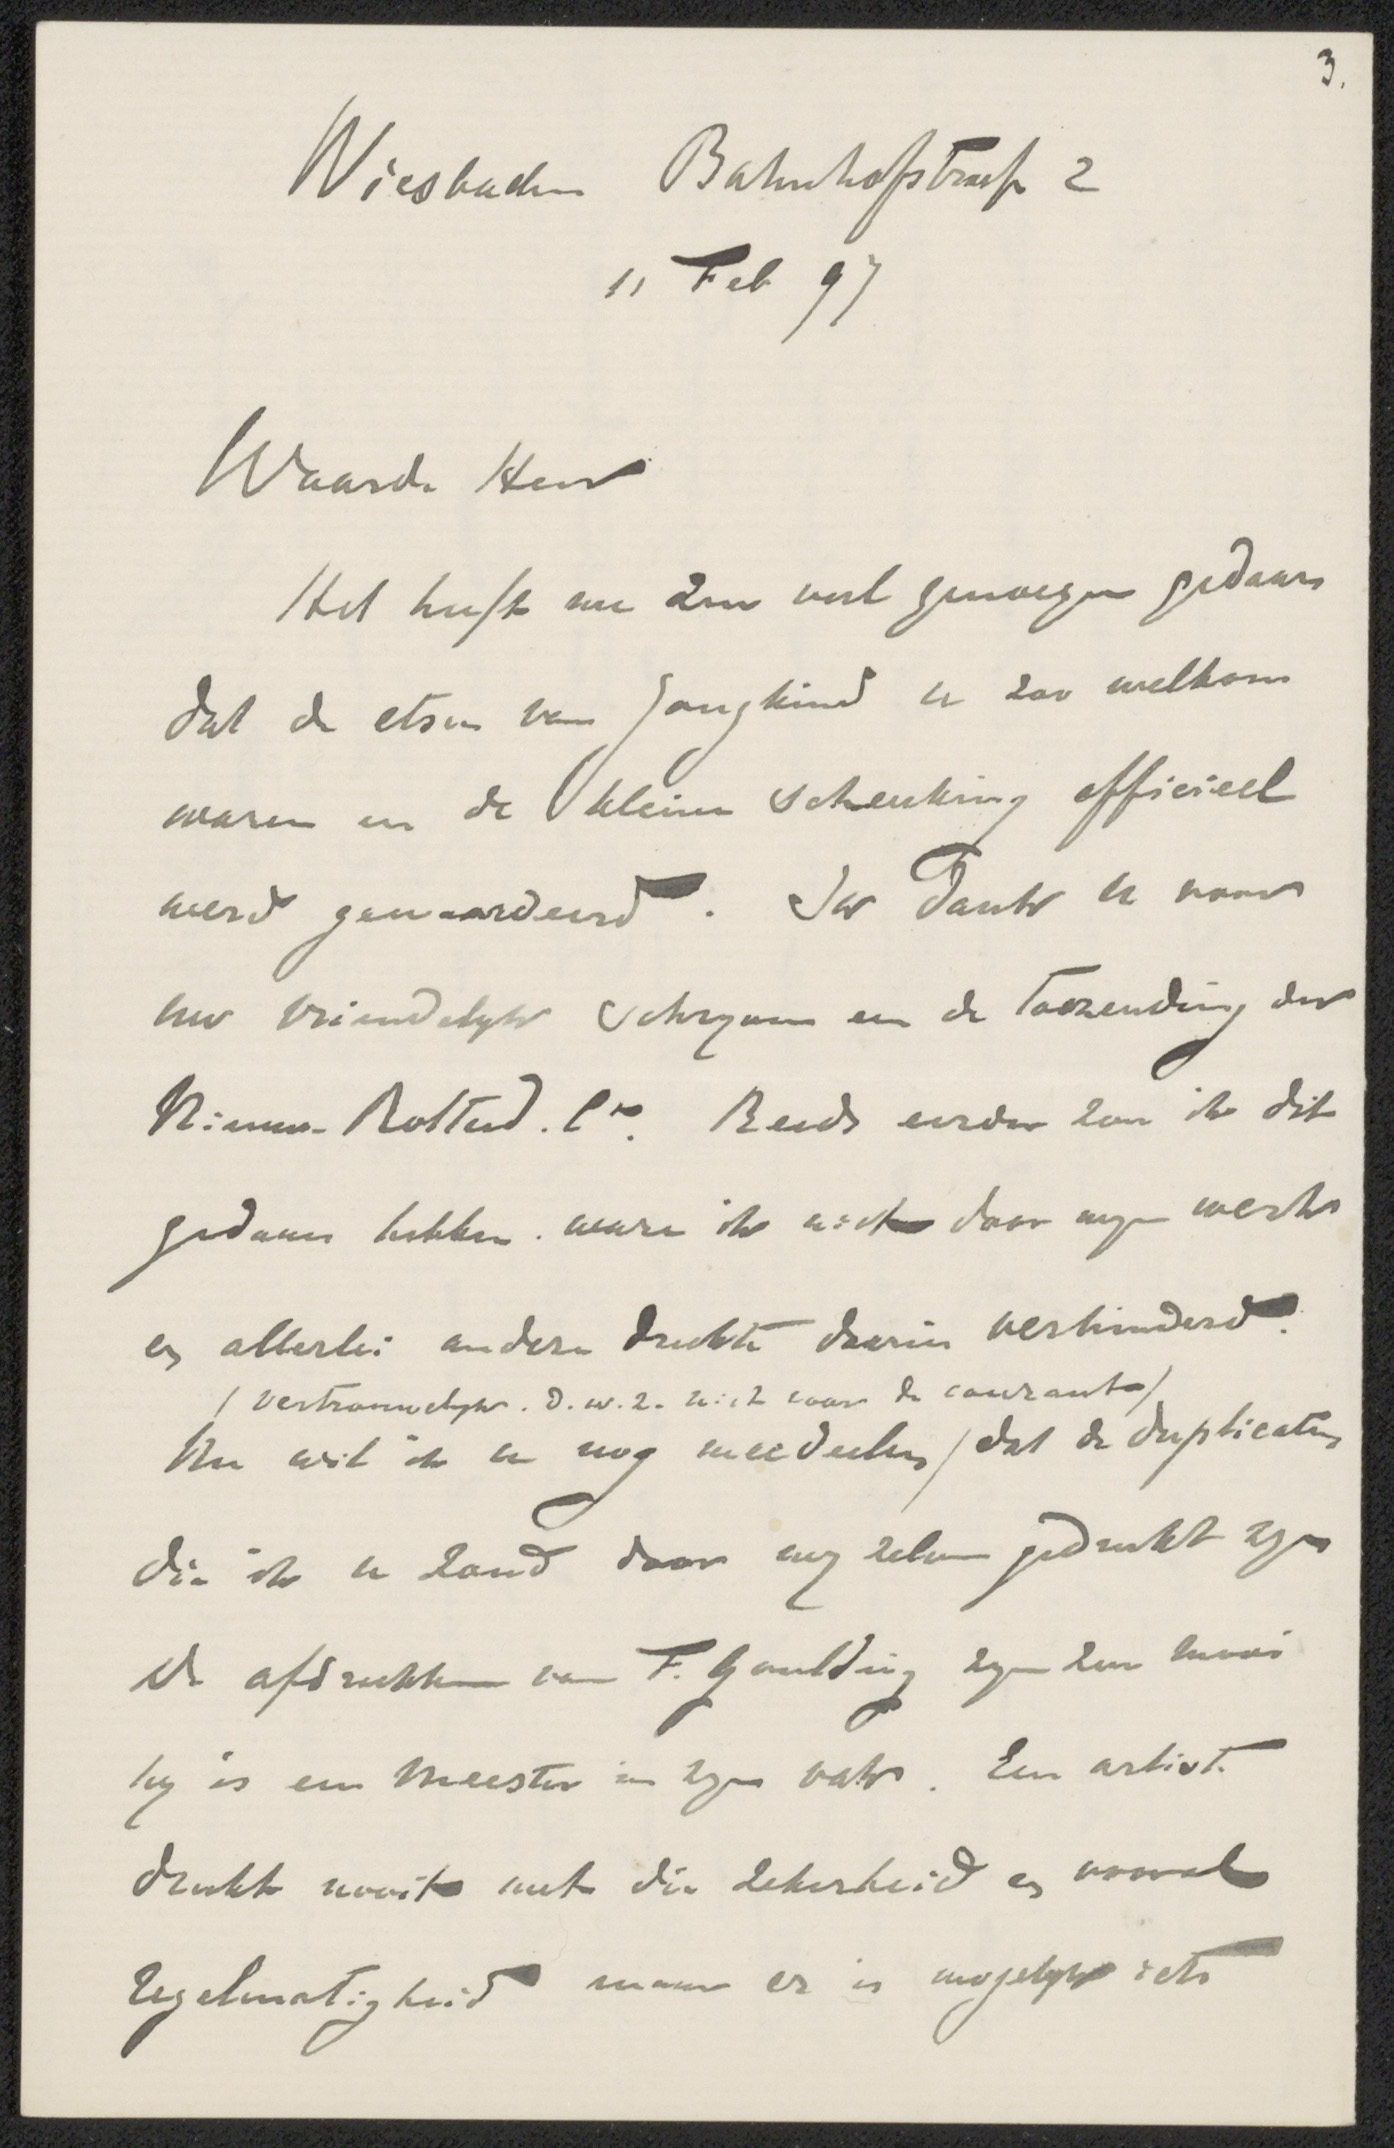 3.
Wiesbaden Bahnhofstrasse 2
11 Feb 97
Waarde Heer
Het heeft me zeer veel genoegen gedaan
dat de etsen van Jongkind u zoo welkom
waren en de kleine schenking officieel
werd gewaardeerd. Ik dank u voor
uw vriendelyk schryven en de toezending der
Nieuwe Rotterd. Ct. Reeds eerder zou ik dit
gedaan hebben. ware ik niet door myn werk
en allerlei andere drukte daarin verhinderd.
(vertrouwelyk. d.w.z. niet voor de courant)
Nu wil ik u nog meedeelen / dat de duplicaten
die ik u zond door my zelven gedrukt zyn
De afdrukken van F. Goulding zyn zeer mooi
hy is een meester in zyn vak. Een artist
drukt nooit met die zekerheid en vooral
regelmatigheid maar er is mogelyk iets